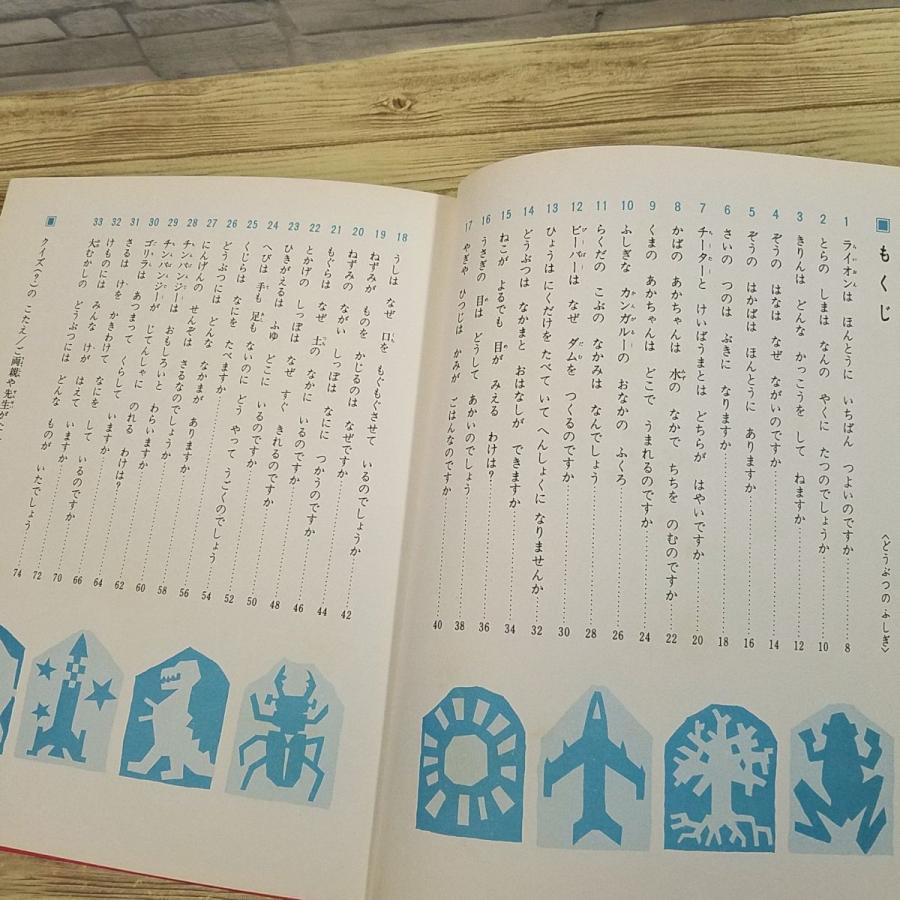 ■ もくじ
〈どうぶつの ふしぎ〉
1 ライオンは ほんとうに いちばん つよいのですか 8
2 とらの しまは なんの やくに たつのでしょうか 10
3 きりんは どんな かっこうを して ねますか 12
4 ぞうの はなは なぜ ながいのですか 14
5 ぞうの はかばは ほんとうに ありますか 16
6 さいの つのは ぶきに なりますか 18
7 チーターと けいばうまとは どちらが はやいですか 20
8 かばの あかちゃんは 水の なかで ちちを のむのですか 22
9 くまの あかちゃんは どこで うまれるのですか 24
10 ふしぎな カンガルーの おなかの ふくろ 26
11 らくだの こぶの なかみは なんでしょう 28
12 ビーバーは なぜ ダムを つくるのですか 30
13 ひょうは にくだけを たべて いて へんしょくに なりませんか 32
14 どうぶつは なかまと おはなしが できますか 34
15 ねこが よるでも 目が みえる わけは? 36
16 うさぎの 目は どうして あかいのでしょう 38
17 やぎや ひつじは かみが ごはんなのですか 40
18 うしは なぜ 口を もぐもぐさせて いるのでしょうか 42
19 ねずみが ものを かじるのは なぜですか
20 ねずみの ながい しっぽは なにに つかうのですか 44
21 もぐらは なぜ 土の なかに いるのですか 46
22 とかげの しっぽは なぜ すぐ きれるのですか 48
23 ひきがえるは ふゆ どこに いるのですか
24 へびは 手も 足も ないのに どう やって うごくのでしょう 50
25 くじらは なにを たべますか 52
26 どうぶつには どんな なかまが ありますか 54
27 にんげんの せんぞは さるなのでしょうか 56
28 チンパンジーは おもしろいと わらいますか 58
29 チンパンジーが じてんしゃに のれる わけは? 60
30 ゴリラは あつまって くらして いますか 62
31 さるは けを かきわけて なにを して いるのですか 64
32 けものには みんな けが はえて いますか 66
33 大むかしの どうぶつには どんな ものが いたでしょう 70
■ クイズ(?)の こたえ/ご両親や先生がた 72
74